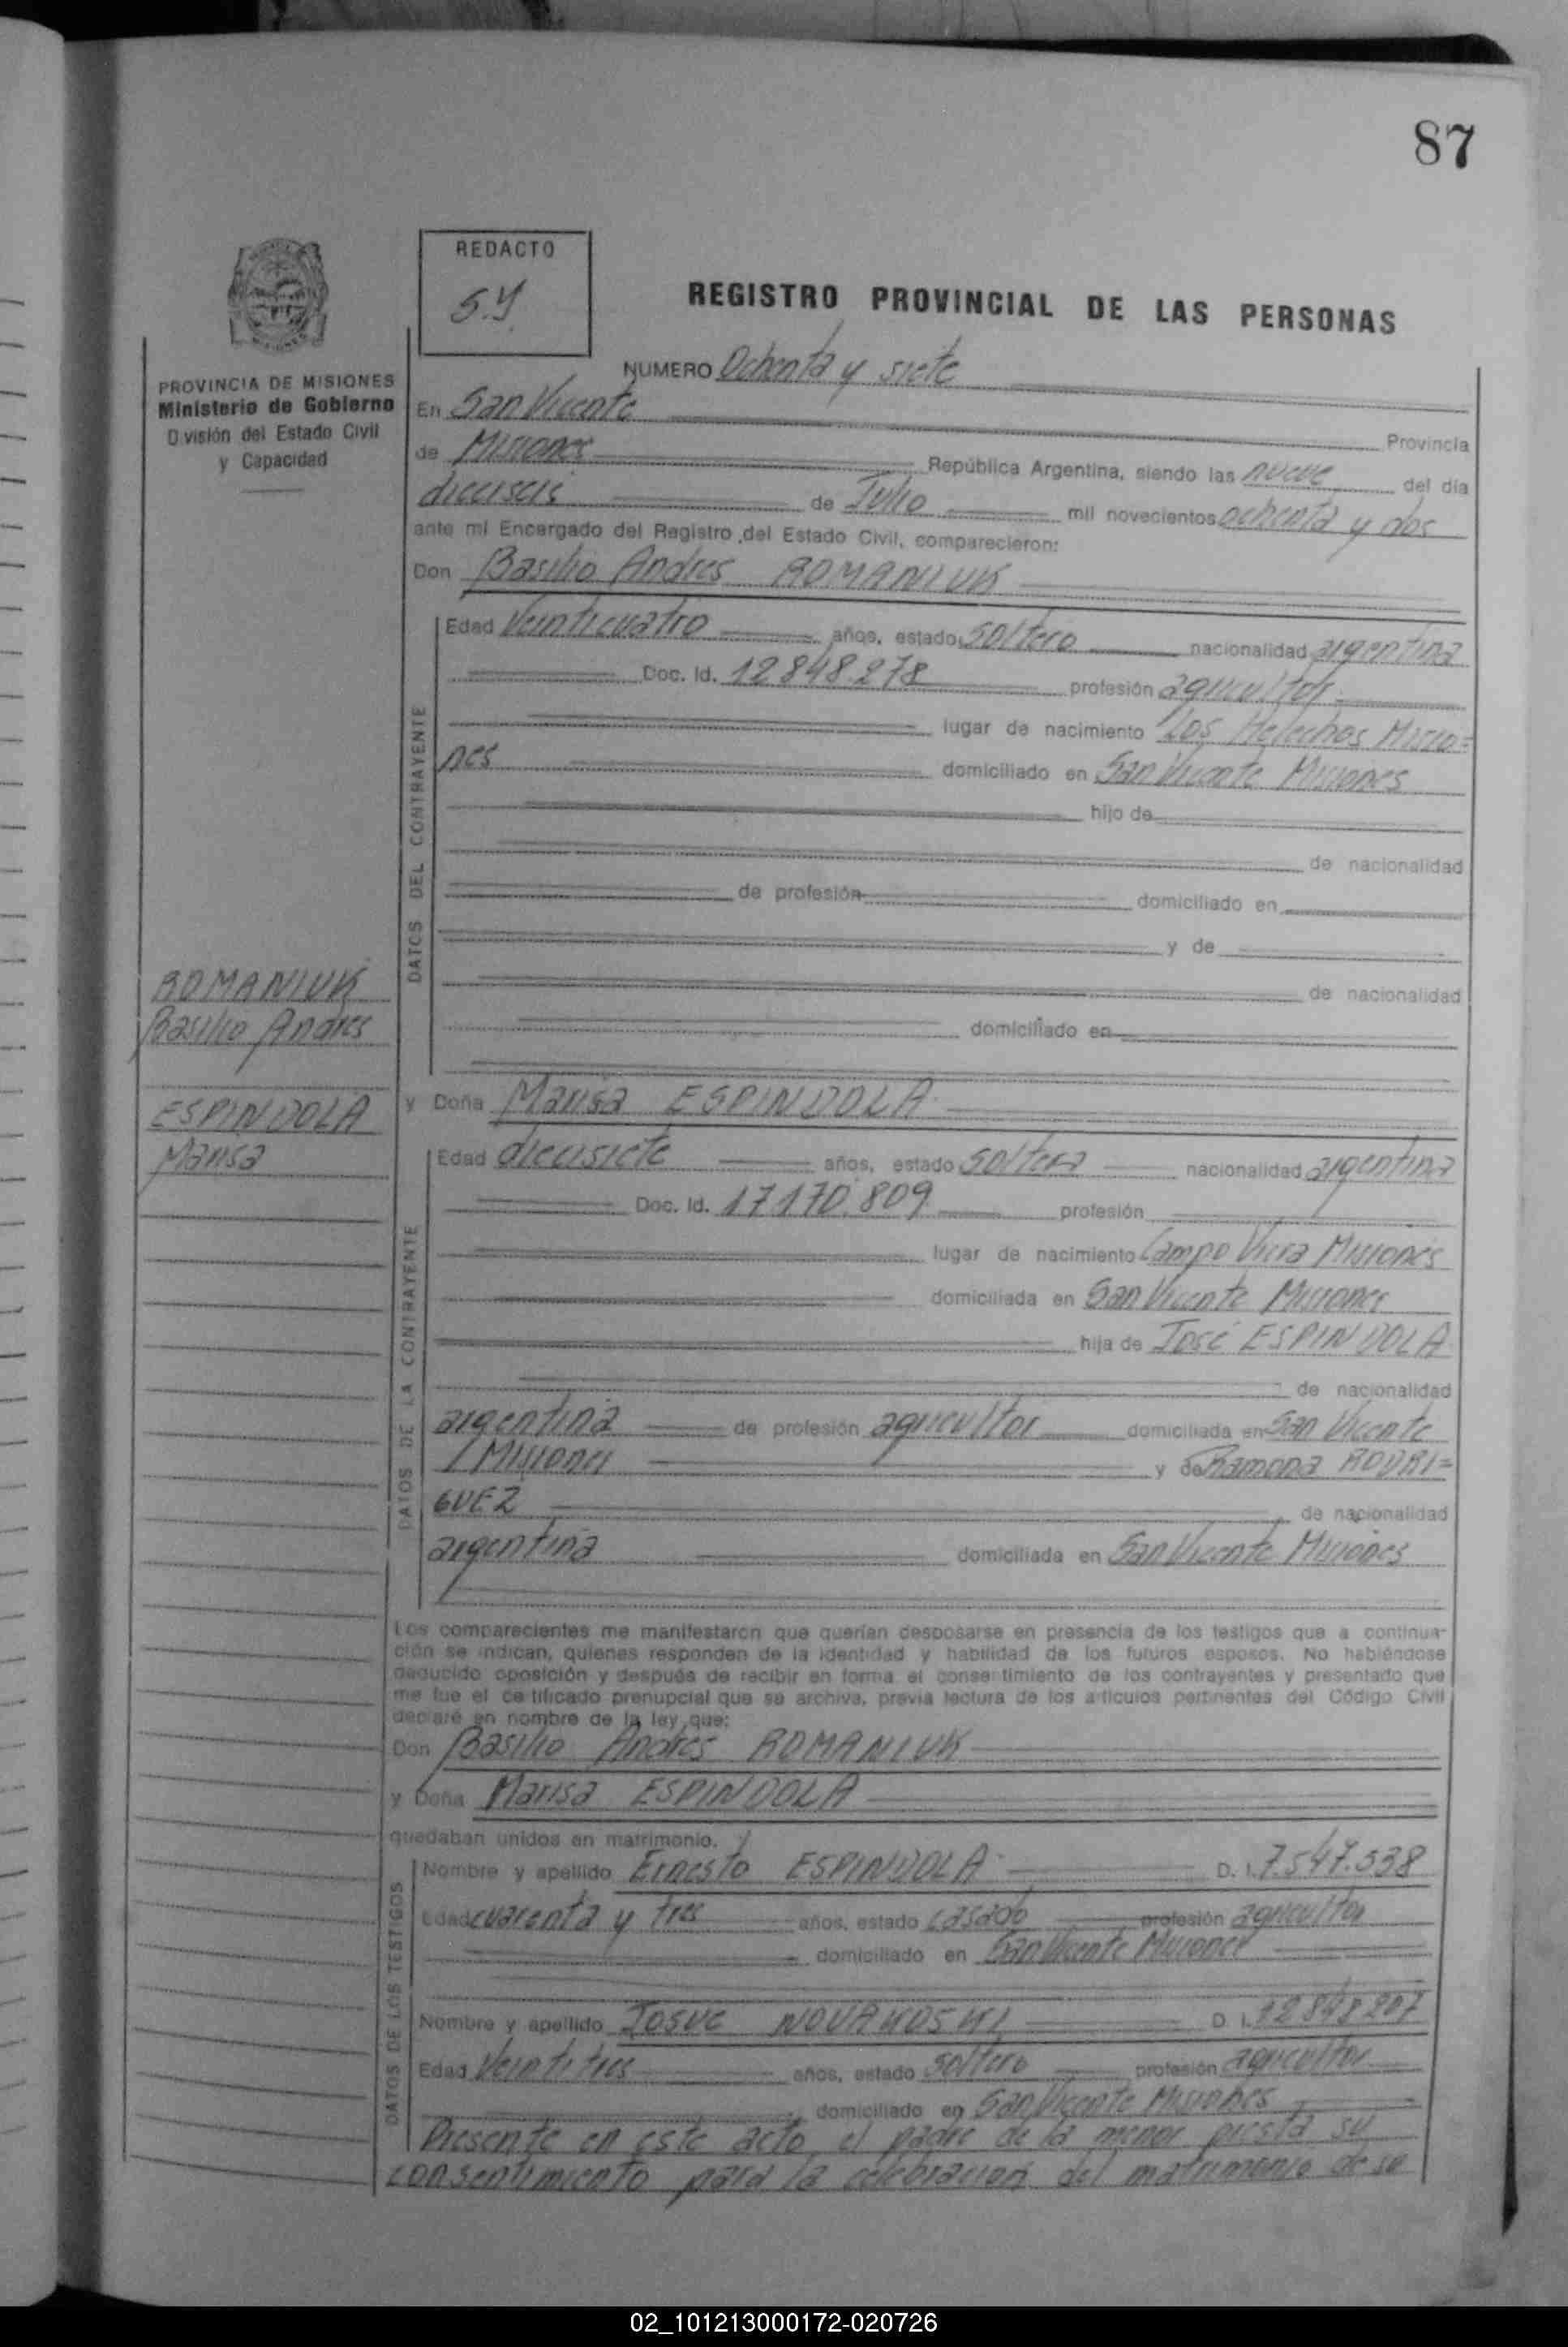 87
REDACTO
S.Y.
REGISTRO PROVINCIAL DE LAS PERSONAS
PROVINCIA DE MISIONES
Ministerio de Gobierno
División del Estado Civil
y Capacidad
NUMERO Ochenta y siete
En San Vicente Provincia
de Misiones República Argentina, siendo las nueve del día
dieciseis de Julio mil novecientos ochenta y dos
ante mi Encargado del Registro del Estado Civil, comparecieron:
Don Basilio Andres ROMANIUK
DATOS DEL CONTRAYENTE
Edad Veinticuatro años, estado soltero nacionalidad argentina
Doc. Id. 12.848.278 profesión agricultor
lugar de nacimiento Los Helechos Misio=
nes domiciliado en San Vicente Misiones
hijo de
de nacionalidad
de profesión domiciliado en
y de
de nacionalidad
domiciliado en
ROMANIUK
Basilio Andres
ESPINDOLA
Marisa
y Doña Marisa ESPINDOLA
DATOS DE LA CONTRAYENTE
Edad diecisiete años, estado soltera nacionalidad argentina
Doc. Id. 17.170.809 profesión
lugar de nacimiento Campo Viera Misiones
domiciliada en San Vicente Misiones
hija de José ESPINDOLA
de nacionalidad
argentina de profesión agricultor domiciliada en San Vicente
Misiones y de Ramona RODRI=
GUEZ de nacionalidad
argentina domiciliada en San Vicente Misiones
Los comparecientes me manifestaron que querían desposarse en presencia de los testigos que a continua-
ción se indican, quienes responden de la identidad y habilidad de los futuros esposos. No habiéndose
deducido oposición y después de recibir en forma el consentimiento de los contrayentes y presentado que
me fue el certificado prenupcial que se archiva, previa lectura de los artículos pertinentes del Código Civil
declaré en nombre de la ley, que:
Don Basilio Andres ROMANIUK
y Doña Marisa ESPINDOLA
quedaban unidos en matrimonio.
DATOS DE LOS TESTIGOS
Nombre y apellido Ernesto ESPINDOLA D. I. 7.547.538
Edad cuarenta y tres años, estado casado profesión agricultor
domiciliado en San Vicente Misiones
Nombre y apellido Josue NOVAKOSKI D. I. 12.848.207
Edad Veintitres años, estado soltero profesión agricultor
domiciliado en San Vicente Misiones
Presente en este acto el padre de la menor presta su
consentimiento para la celebracion del matrimonio de su
02_101213000172-020726